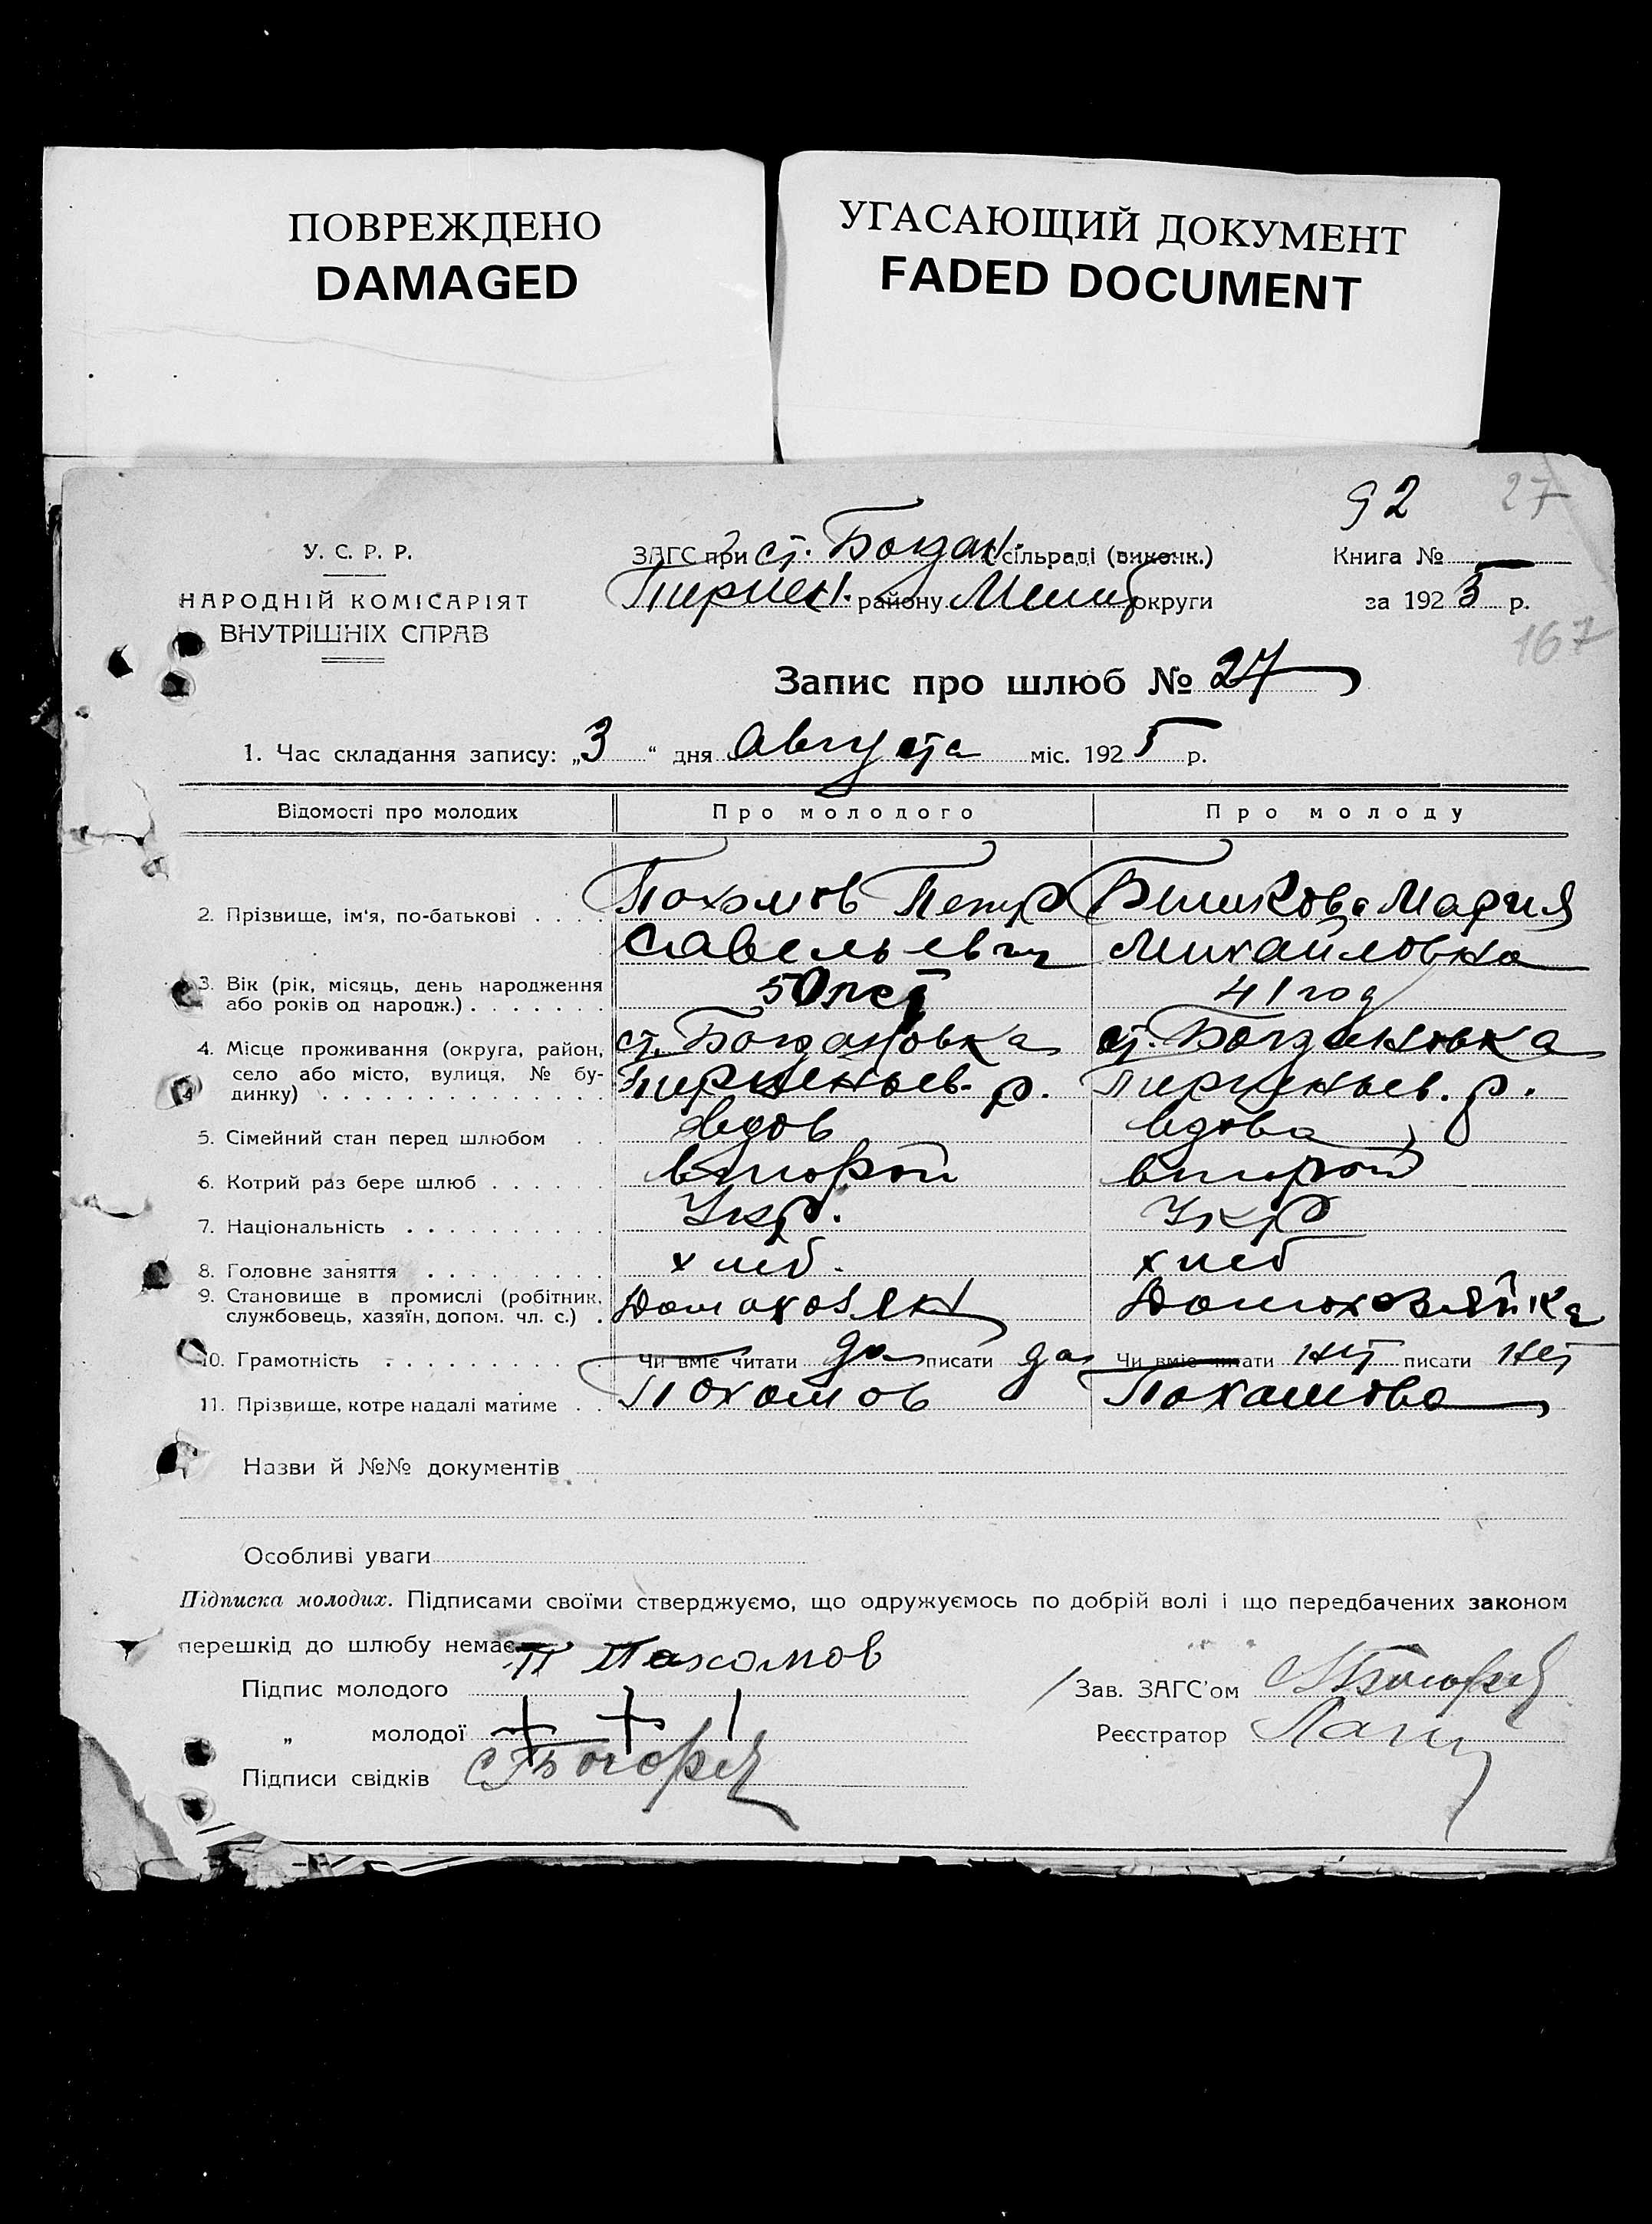 ПОВРЕЖДЕНО
DAMAGED
УГАСАЮЩИЙ ДОКУМЕНТ
FADED DOCUMENT
92 27
У. С. Р. Р.
НАРОДНІЙ КОМІСАРІЯТ
ВНУТРІШНІХ СПРАВ
ЗАГС при ст. Богдан. сільраді (виконк.)
району округи
Книга №
за 1925 р.
167
Запис про шлюб № 27
1. Час складання запису: „3“ дня Августа міс. 1925 р.
Відомості про молодих Про молодого Про молоду
2. Прізвище, ім'я, по-батькові . . . . Похомов Петр Мария
Савельевич Михайловна
3. Вік (рік, місяць, день народження або років од народж.) . . . . . . . 50 лет 41 год
4. Місце проживання (округа, район, село або місто, вулиця, № будинку) . . . . . . . . . . . . . . ст. Богдановка р. ст. Богдановка р.
5. Сімейний стан перед шлюбом . . вдов вдова
6. Котрий раз бере шлюб . . . . . . второй второй
7. Національність . . . . . . . . . . Укр. Укр
8. Головне заняття . . . . . . . . . хлеб. хлеб
9. Становище в промислі (робітник, службовець, хазяїн, допом. чл. с.) . Домохозяин Домохозяйка
10. Грамотність . . . . . . . . . . . Чи вміє читати да писати да Чи вміє читати нет писати нет
11. Прізвище, котре надалі матиме . . Похомов Похамова
Назви й №№ документів
Особливі уваги
Підписка молодих. Підписами своїми стверджуємо, що одружуємось по добрій волі і що передбачених законом
перешкід до шлюбу немає.
Підпис молодого П Пахомов
„ молодої + + 1
Підписи свідків
Зав. ЗАГС'ом
Реєстратор